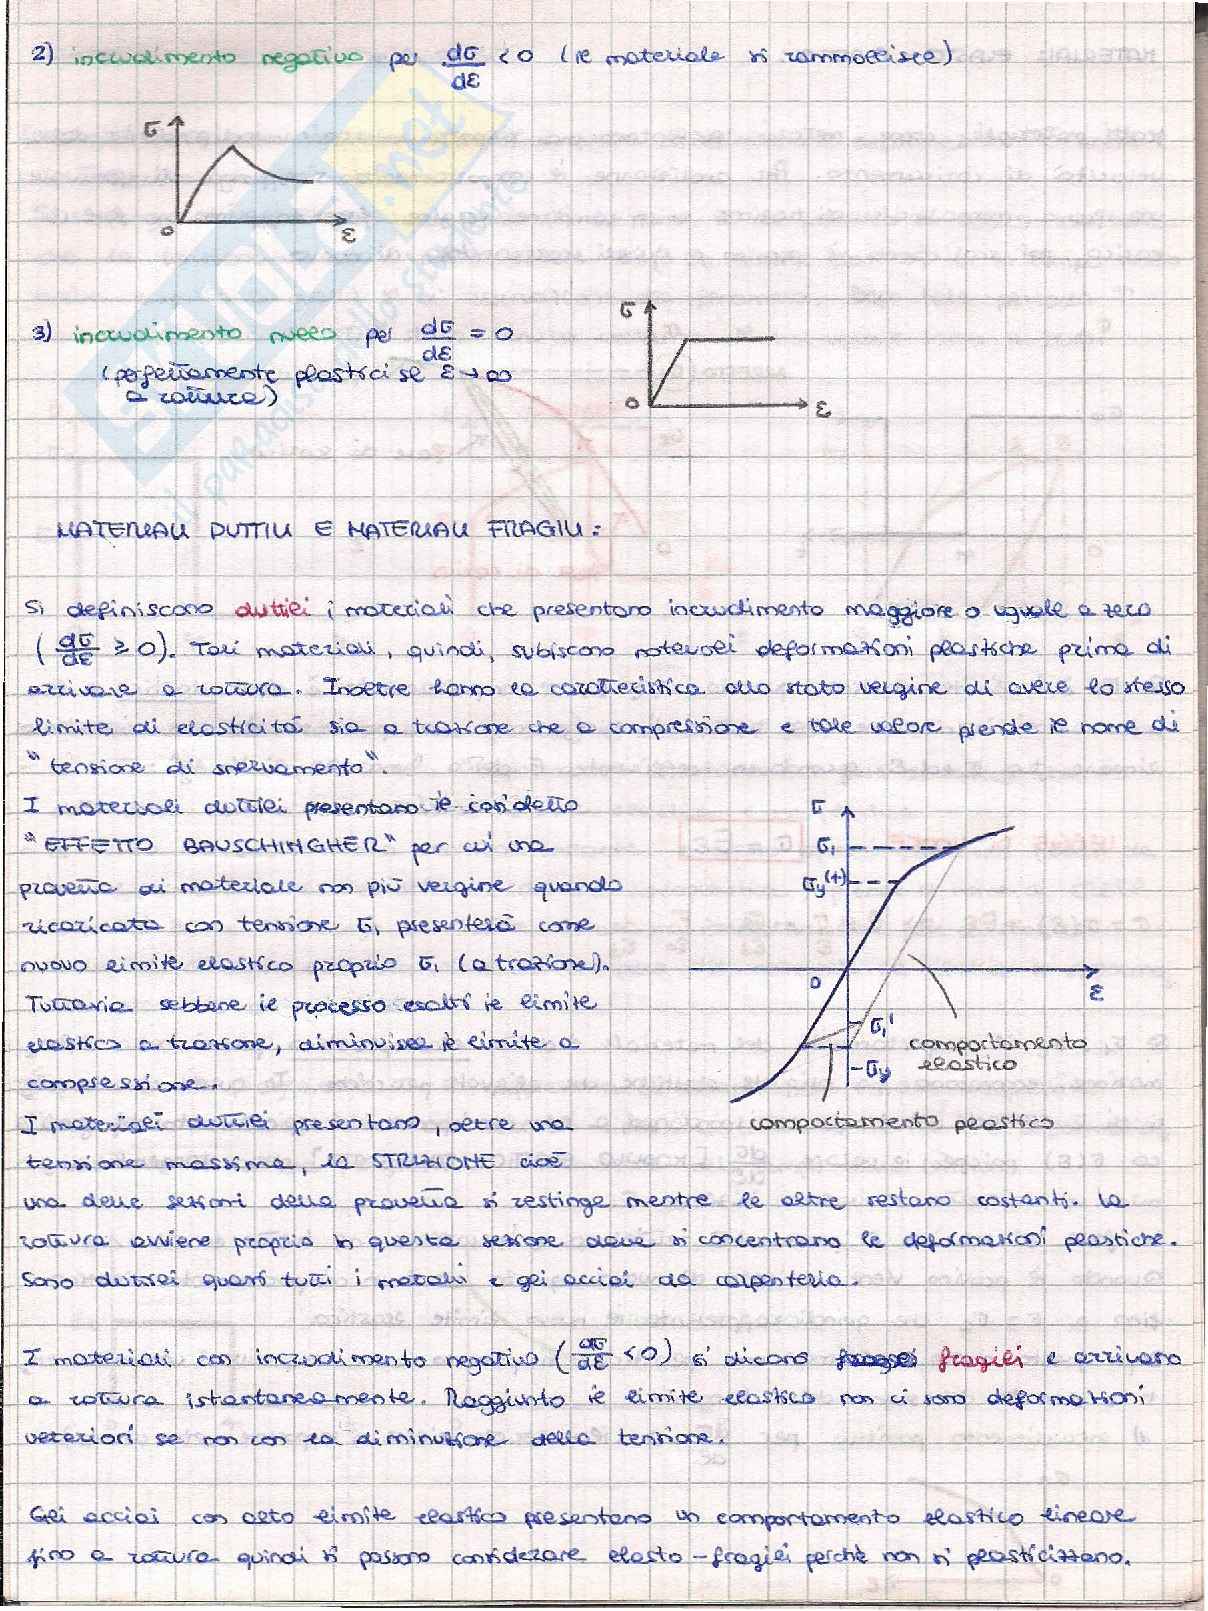 2) incrudimento negativo per dσ/dε < 0 (il materiale si rammollisce)
σ
0
ε
3) incrudimento nullo per dσ/dε = 0
(perfettamente plastici se ε → ∞
a rottura)
σ
0
ε
MATERIALI DUTTILI E MATERIALI FRAGILI:
Si definiscono duttili i materiali che presentano incrudimento maggiore o uguale a zero
(dσ/dε ≥ 0). Tali materiali, quindi, subiscono notevoli deformazioni plastiche prima di
arrivare a rottura. Inoltre hanno la caratteristica allo stato vergine di avere lo stesso
limite di elasticità sia a trazione che a compressione e tale valore prende il nome di
"tensione di snervamento".
I materiali duttili presentano il cosìdetto
"EFFETTO BAUSCHINGHER" per cui una
provetta di materiale non più vergine quando
ricaricata con tensione σ₁ presenterà come
nuovo limite elastico proprio σ₁ (a trazione).
Tuttavia sebbene il processo esalti il limite
elastico a trazione, diminuisce il limite a
compressione.
σ
σ₁
σy(+)
0
ε
σ₁'
-σy
comportamento
elastico
comportamento plastico
I materiali duttili presentano, oltre una
tensione massima, la STRIZIONE cioè
una delle sezioni della provetta si restinge mentre le altre restano costanti. La
rottura avviene proprio in questa sezione dove si concentrano le deformazioni plastiche.
Sono duttili quasi tutti i metalli e gli acciai da carpenteria.
I materiali con incrudimento negativo (dσ/dε < 0) si dicono fragili e arrivano
a rottura istantaneamente. Raggiunto il limite elastico non ci sono deformazioni
ulteriori se non con la diminuzione della tensione.
Gli acciai con alto limite elastico presentano un comportamento elastico lineare
fino a rottura quindi si possono considerare elasto-fragili perchè non si plasticizzano.
SKUOLA.net
il paradiso dello studente